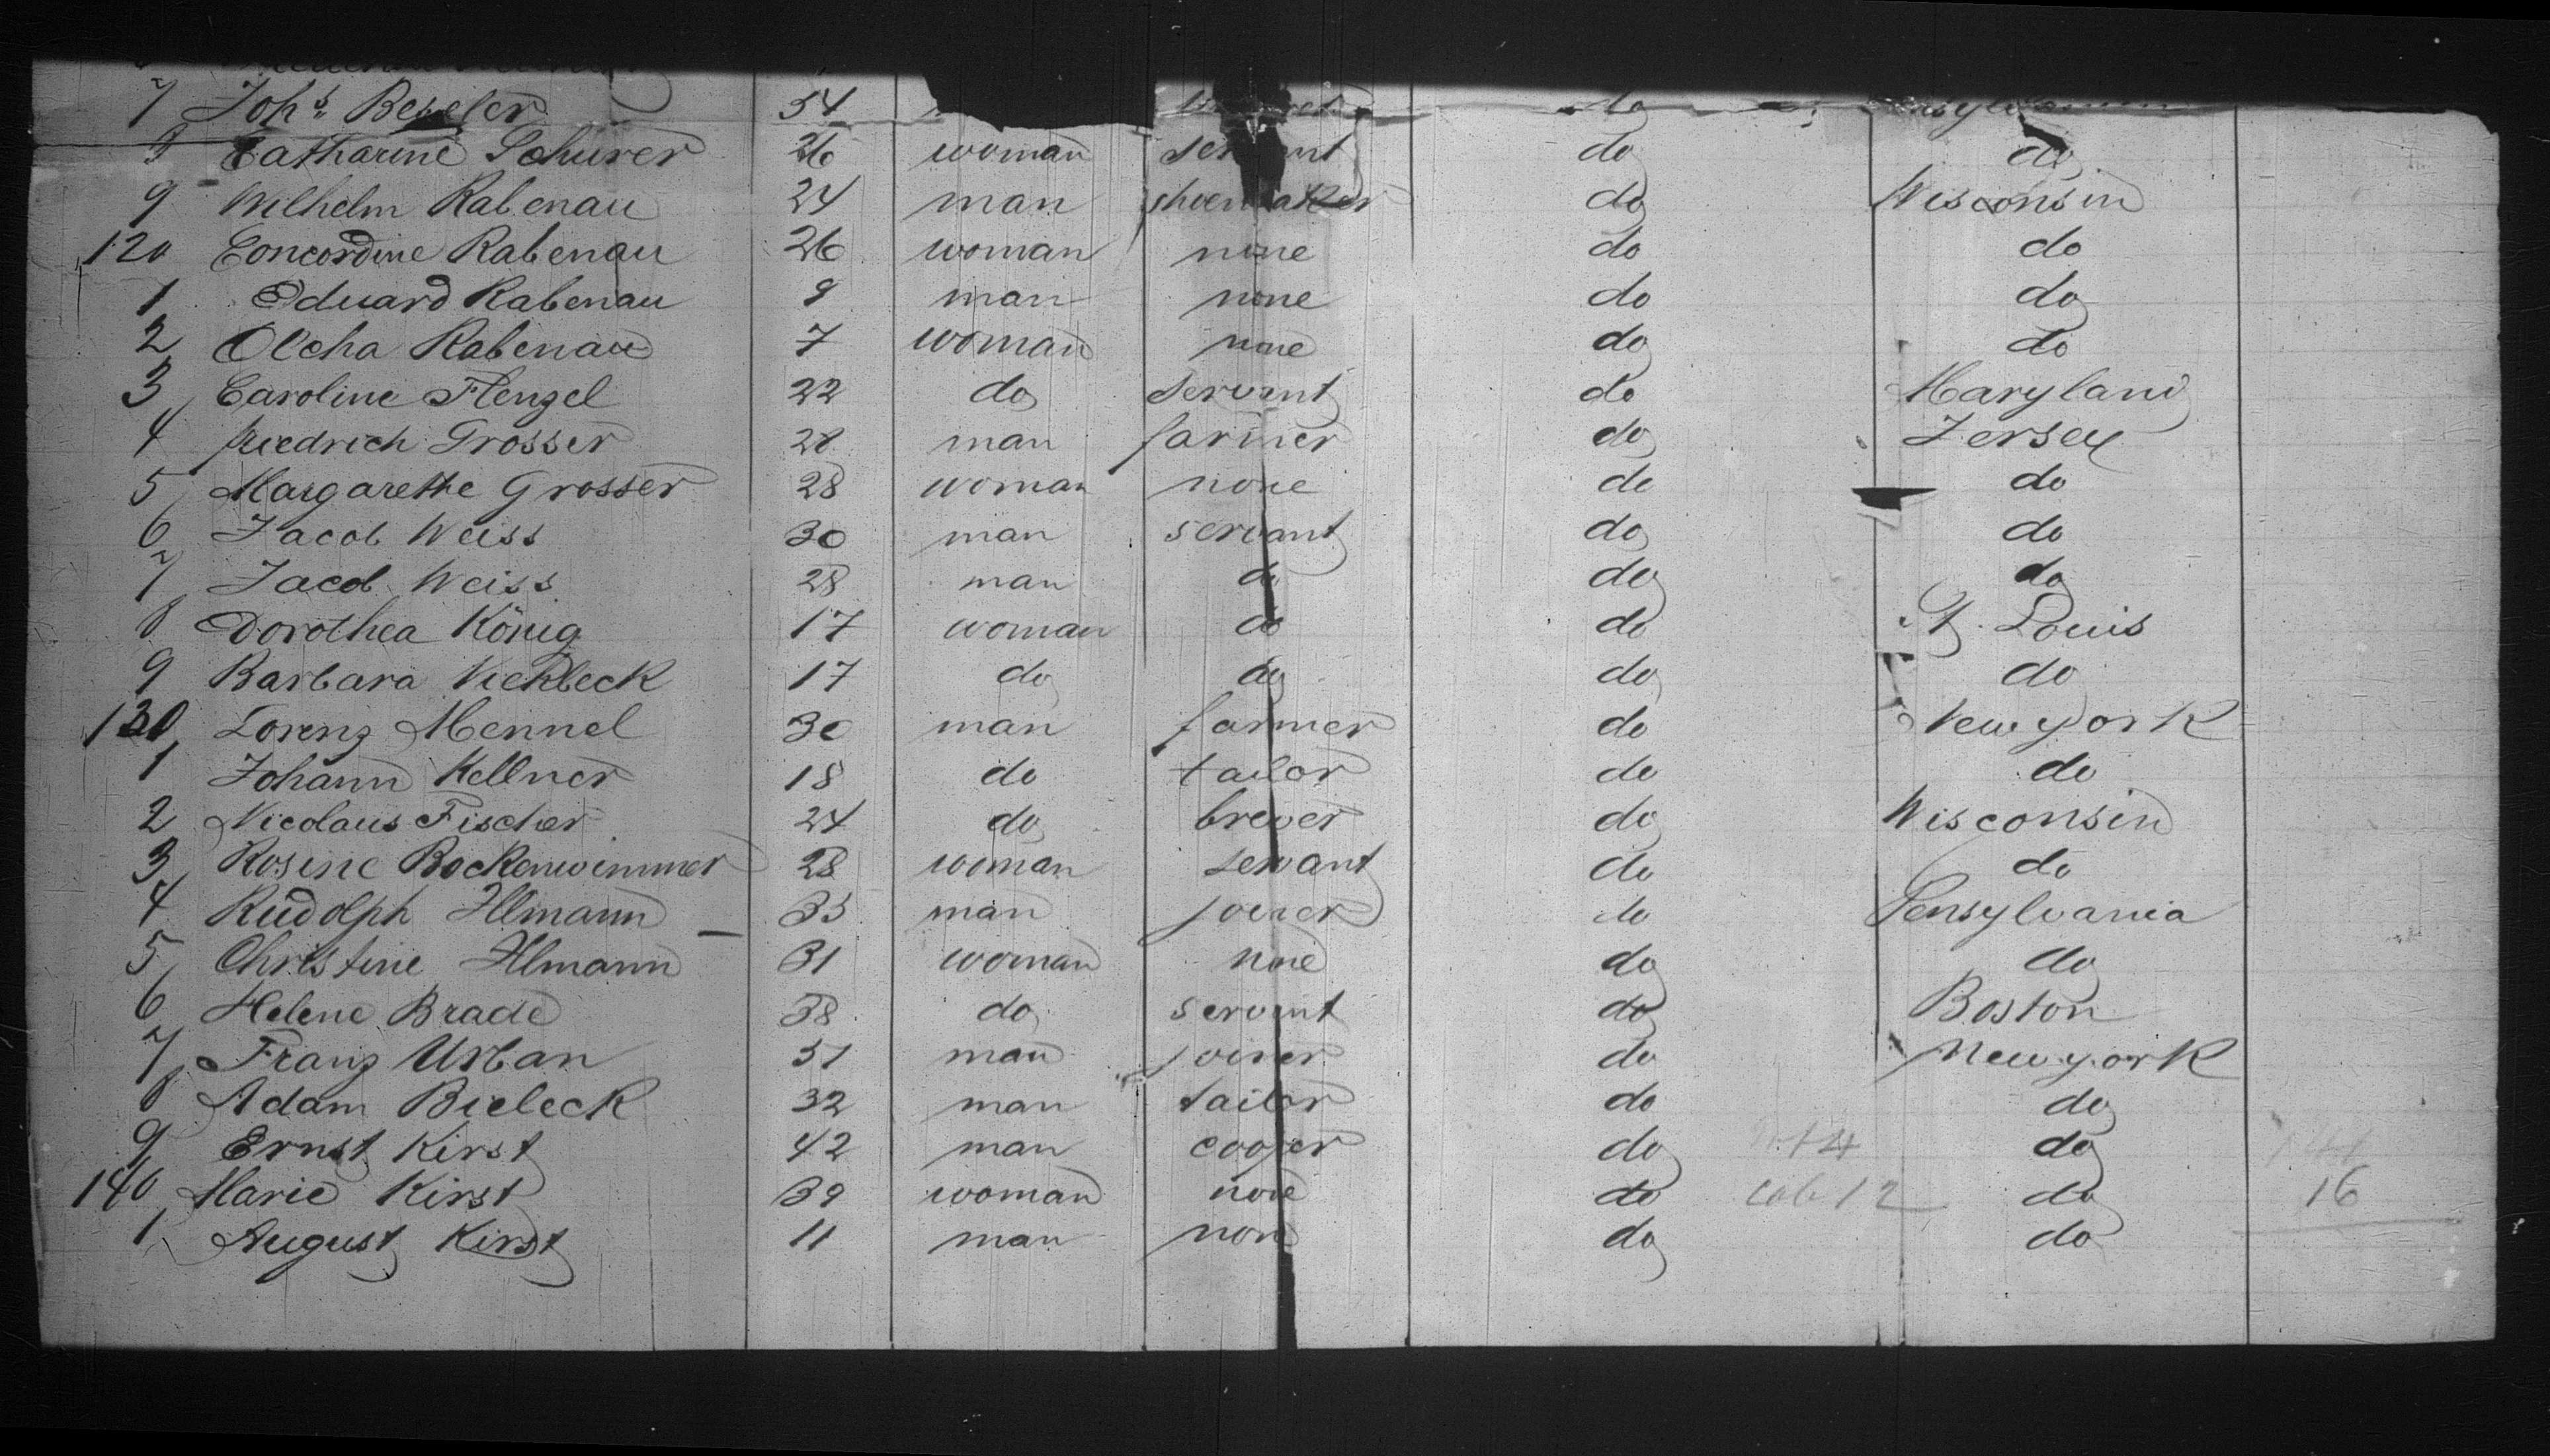 7 Joh.s Beseler 34 do
8 Catharine Schurer 26 woman servant do do
9 Wilhelm Rabenau 24 man shoemaker do Wisconsin
120 Concordine Rabenau 26 woman none do do
1 Eduard Rabenau 9 man none do do
2 Olcha Rabenau 7 woman none do do
3 Caroline Flengel 22 do servant do Maryland
4 Friedrich Grosser 28 man farmer do Jersey
5 Margarethe Grosser 28 woman none do do
6 Jacob Weiss 30 man servant do do
7 Jacob Weiss 28 man do do do
8 Dorothea König 17 woman do do St. Louis
9 Barbara 17 do do do do
130 Lorenz Mennel 30 man farmer do New york
1 Johann Kellner 18 do tailor do do
2 Nicolaus Fischer 24 do brewer do Wisconsin
3 Rosine Bockenwimmer 28 woman servant do do
4 Rudolph Illmann 35 man joiner do Pensylvania
5 Christine Illmann 31 woman none do do
6 Helene Brade 38 do servant do Boston
7 Franz Urban 31 man joiner do New york
8 Adam Bieleck 32 man tailor do do
9 Ernst Kirst 42 man cooper do do
140 Marie Kirst 39 woman none do cab 12 do 16
1 August Kirst 11 man none do do